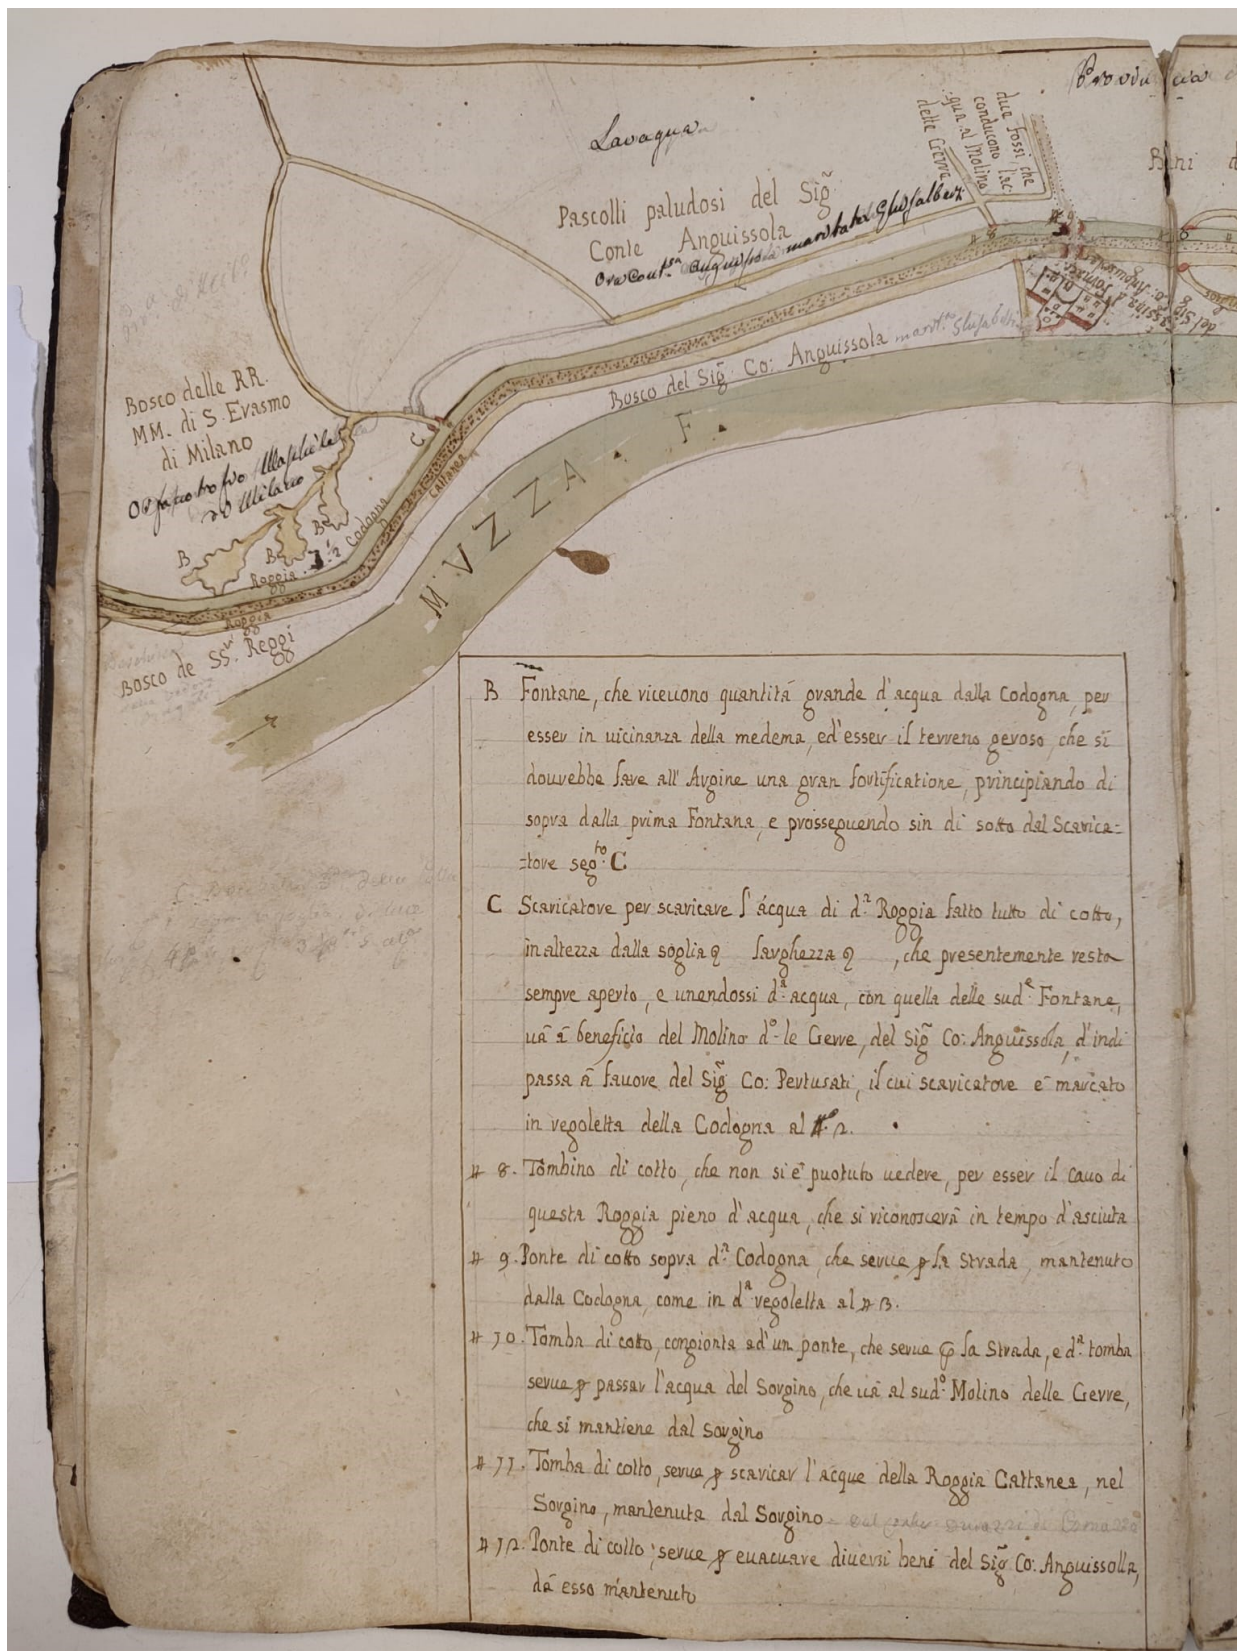 Lavagna
due fossi, che
conducono l'ac:
qua al Molino
delle Gerre
Beni
Pascolli paludosi del Sig.̃
Conte Anguissola
Ora Cont.sa Anguissola maritata Ghisalberti
# 8
# 9
Bosco del Sig.̃ Co: Anguissola
Bosco delle RR.
MM. di S. Erasmo
di Milano
di Milano
C
B
B
B
Roggia Codogna
Cattanea
Roggia
MVZZA . F .
Bosco de SS.ri Reggi
B Fontane, che riceuono quantitá grande d'acqua dalla Codogna, per
esser in uicinanza della medema, ed'esser il terreno geroso, che si
dourebbe fare all' Argine una gran fortificatione, principiando di
sopra dalla prima Fontana, e prosseguendo sin di sotto dal Scarica=
=tore seg.to C
C Scaricatore per scaricare l'acqua di d.a Roggia fatto tutto di cotto,
in altezza dalla soglia q larghezza q , che presentemente resta
sempre aperto, e unendossi d.a acqua, con quella delle sud.e Fontane,
uà à beneficio del Molino d.o le Gerre, del Sig.̃ Co: Anguissola, d'indi
passa à fauore del Sig.̃ Co: Pertusati, il cui scaricatore è marcato
in regoletta della Codogna al #.o 2.
# 8. Tombino di cotto, che non si è puotuto uedere, per esser il cauo di
questa Roggia pieno d'acqua, che si riconoscerà in tempo d'asciuta
# 9. Ponte di cotto sopra d.a Codogna, che serue ꝑ la Strada, mantenuto
dalla Codogna, come in d.a regoletta al # 3.
# 10. Tomba di cotto, congionta ad'un ponte, che serue ꝑ la Strada, e d.a tomba
serue ꝑ passar l'acqua del Sorgino, che uà al sud.o Molino delle Gerre,
che si mantiene dal Sorgino
# 11. Tomba di cotto, serue ꝑ scaricar l'acque della Roggia Cattanea, nel
Sorgino, mantenuta dal Sorgino
# 12. Ponte di cotto, serue ꝑ euacuare diuersi beni del Sig.̃ Co: Anguissolla,
dà esso mantenuto